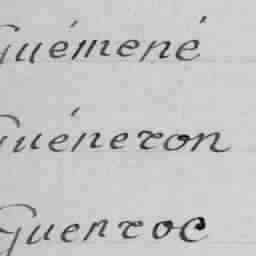 Guémené
Guéneron
Guenroc